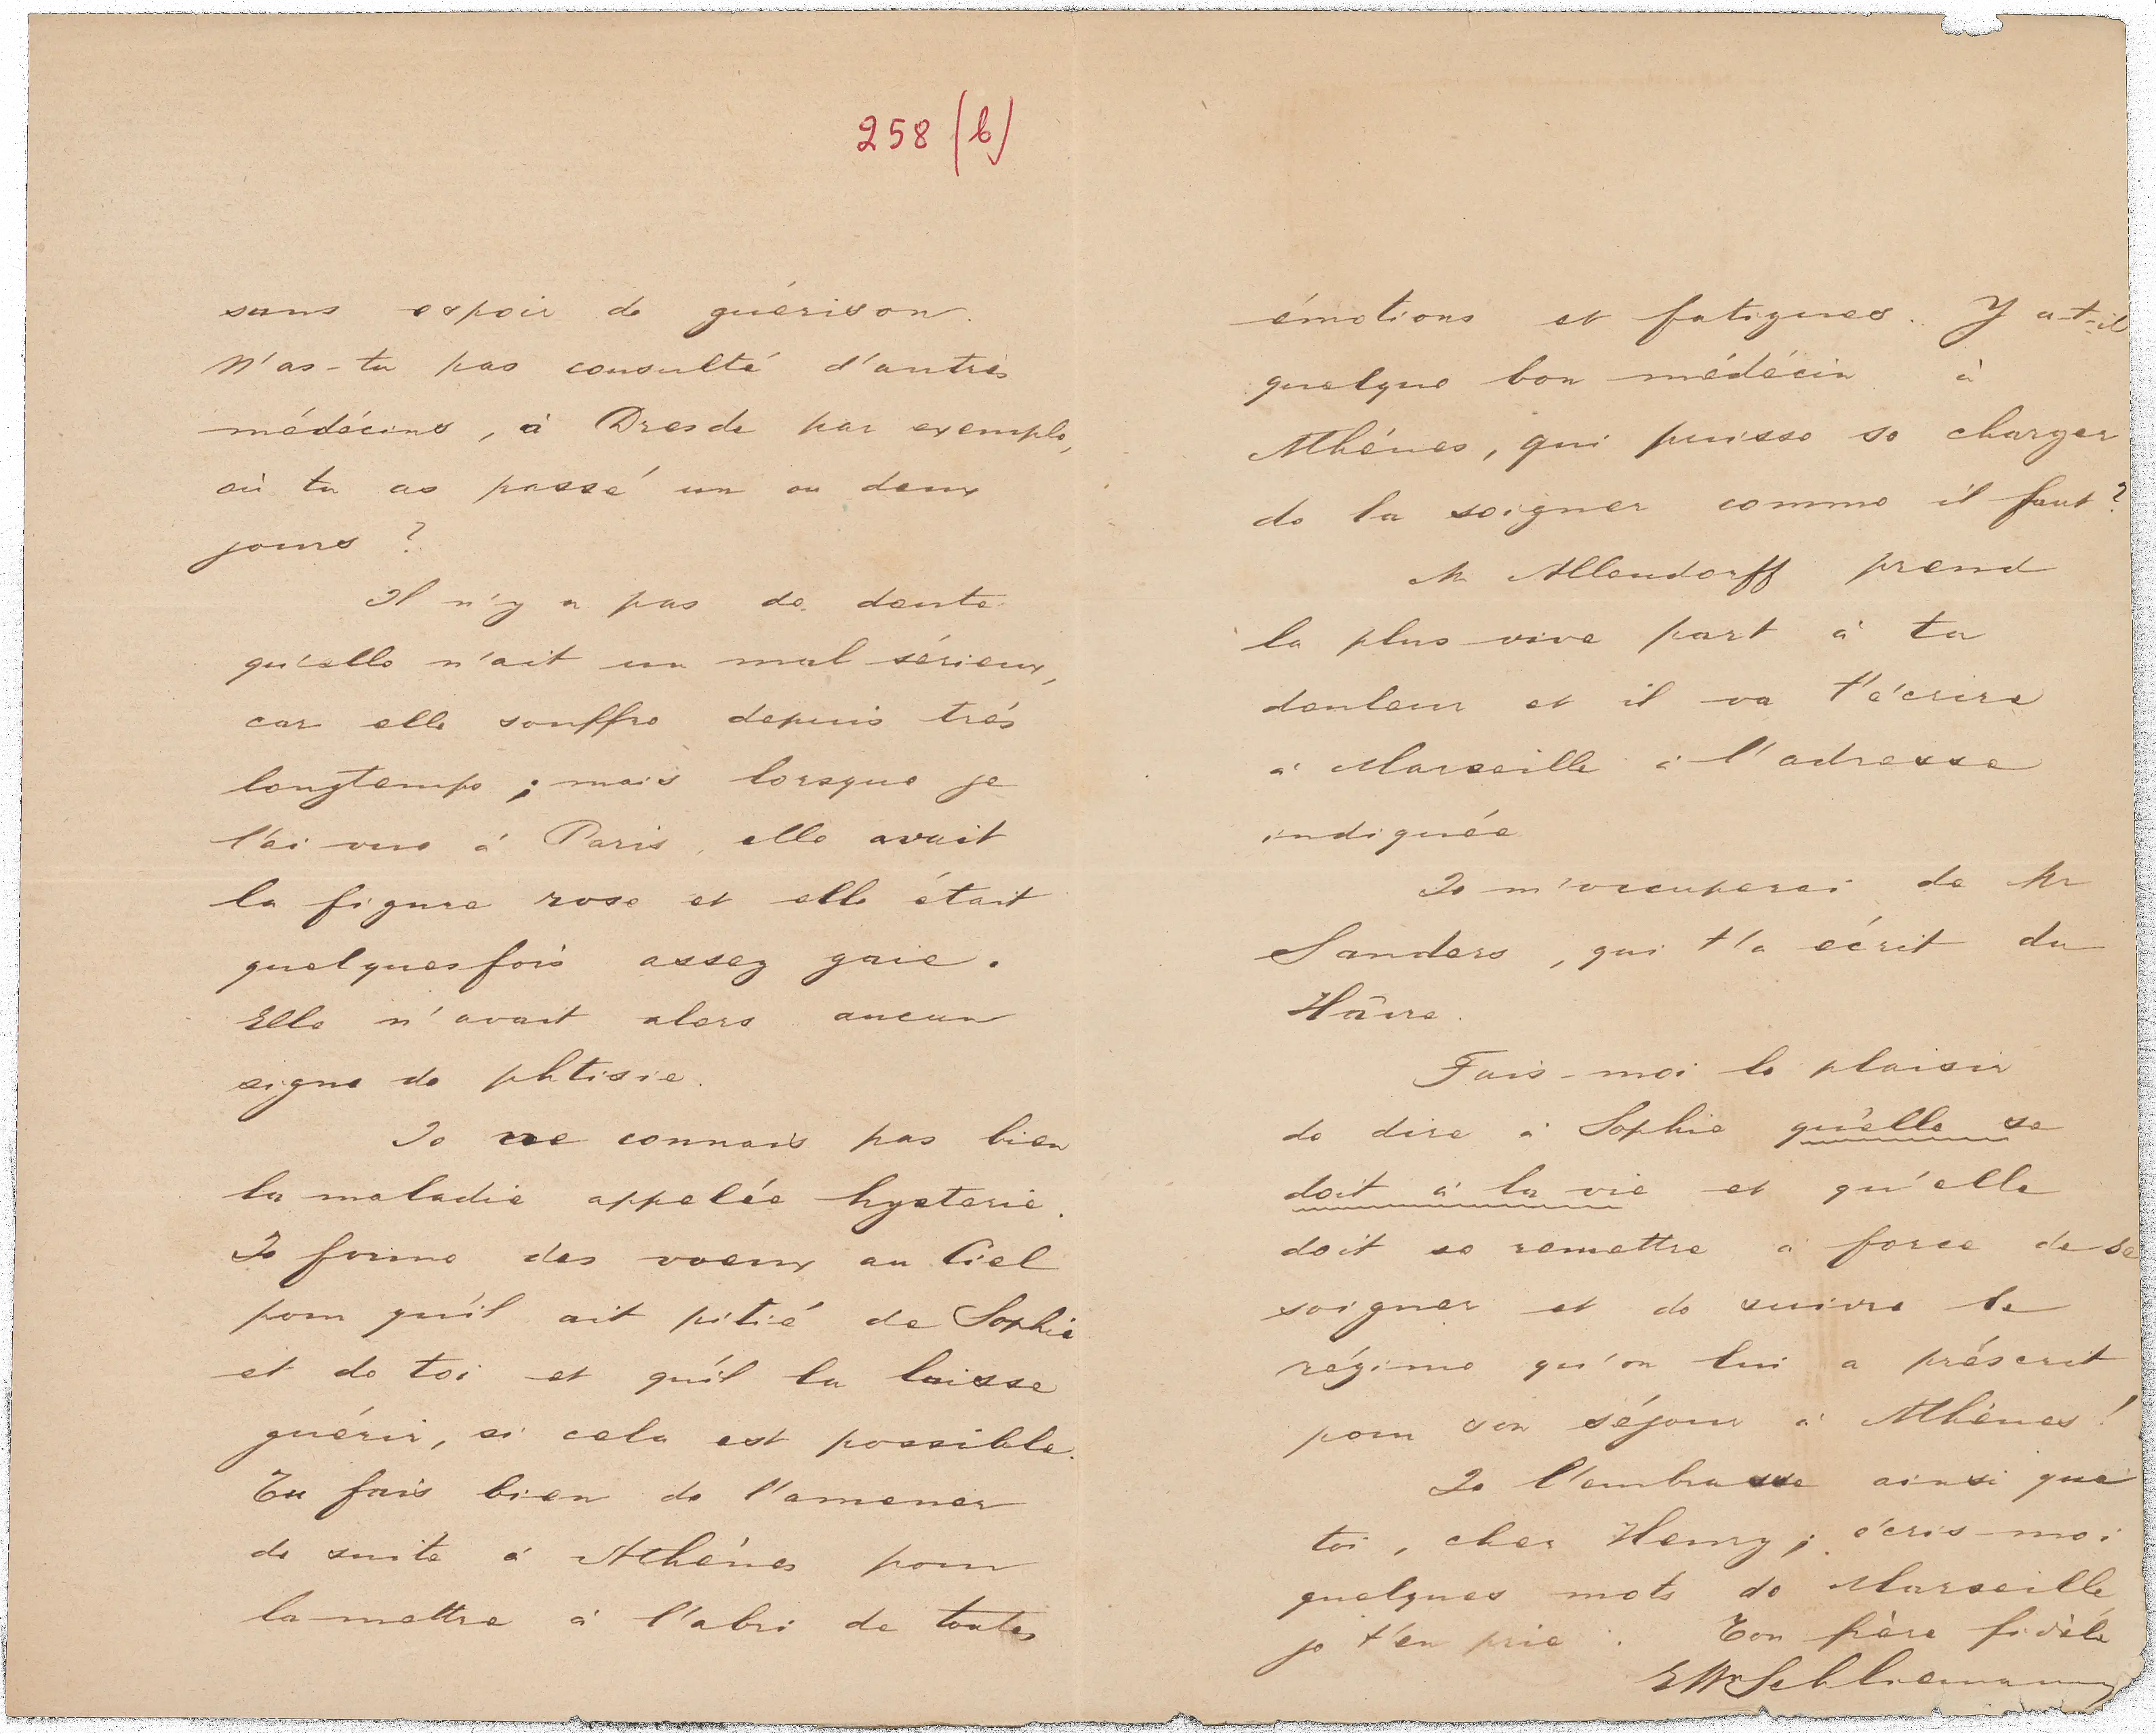 258 (b)
sans espoir de guérison.
N'as-tu pas consulté d'autres
médécins, à Dresde par exemple,
où tu as passé un ou deux
jours ?
Il n'y a pas de doute
qu'elle n'ait un mal sérieux,
car elle souffre depuis trés
longtemps ; mais lorsque je
l'ai vue à Paris, elle avait
la figure rose et elle était
quelquesfois assez gaie.
Elle n'avait alors aucun
signe de phtisie.
Je ne connais pas bien
la maladie appelée hysterie.
Je forme des voeux au Ciel
pour qu'il ait pitié de Sophie
et de toi et qu'il la laisse
guérir, si cela est possible.
Tu fais bien de l'amener
de suite à Athénes pour
la mettre à l'abri de toutes
émotions et fatigues. Y a-t-il
quelque bon médécin à
Athénes, qui puisse se charger
de la soigner comme il faut ?
Mr Allendorff prend
la plus vive part à ta
douleur et il va t'écrire
à Marseille à l'adresse
indiquée
Je m'occuperai de Mr
Sanders, qui t'a écrit du
Hâvre.
Fais-moi le plaisir
de dire à Sophie qu'elle se
doit à la vie et qu'elle
doit se remettre à force de se
soigner et de suivre le
régime qu'on lui a préscrit
pour son séjour à Athènes !
Je l'embrasse ainsi que
toi, cher Henry ; écris-moi
quelques mots de Marseille,
je t'en prie. Ton frère fidèle
Schliemann